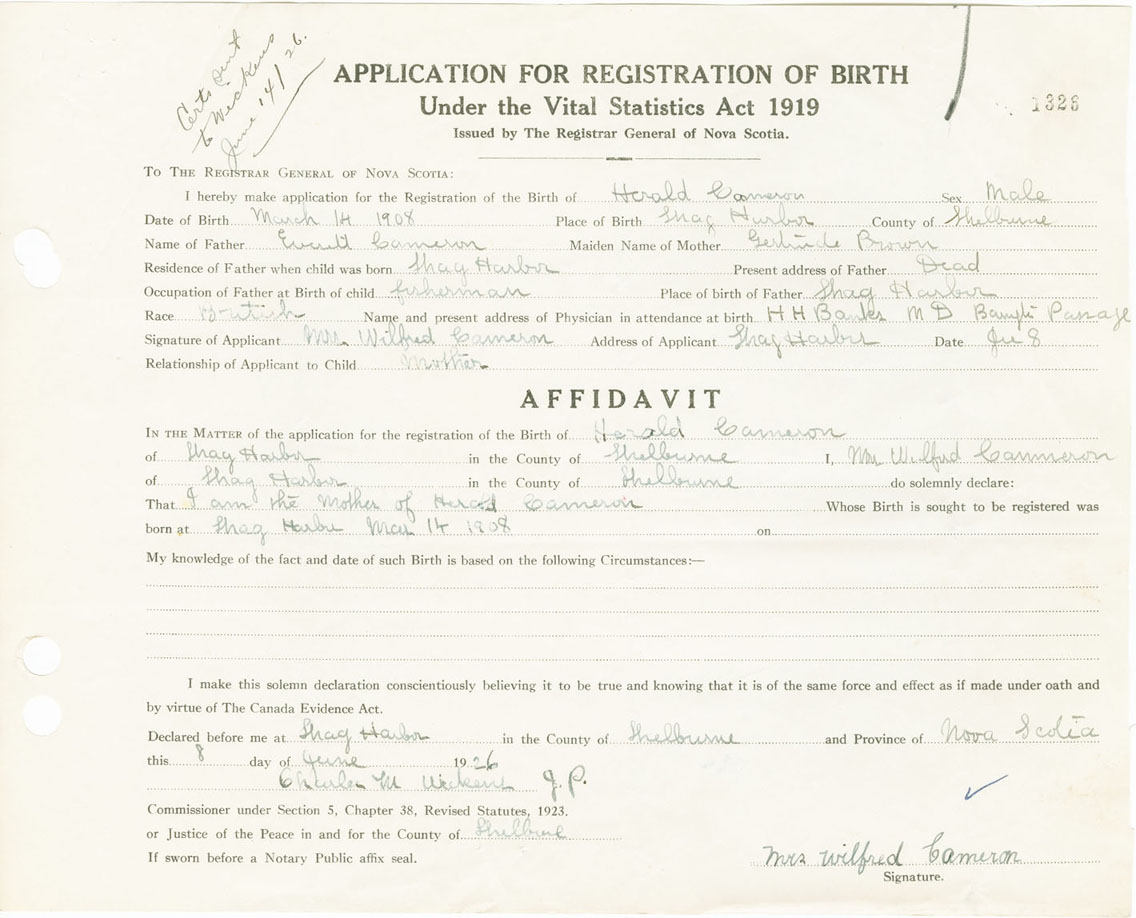 Certs sent
to Wickens
June 14/26.
1326
APPLICATION FOR REGISTRATION OF BIRTH
Under the Vital Statistics Act 1919
Issued by The Registrar General of Nova Scotia.
TO THE REGISTRAR GENERAL OF NOVA SCOTIA:
I hereby make application for the Registration of the Birth of Herald Cameron Sex Male
Date of Birth March 14 1908 Place of Birth Shag Harbor County of Shelburne
Name of Father Everett Cameron Maiden Name of Mother Gertrude Brown
Residence of Father when child was born Shag Harbor Present address of Father Dead
Occupation of Father at Birth of child fisherman Place of birth of Father Shag Harbor
Race British Name and present address of Physician in attendance at birth H H Banks M D Passage
Signature of Applicant Mrs. Wilfred Cameron Address of Applicant Shag Harbor Date Ju 8
Relationship of Applicant to Child Mother
AFFIDAVIT
IN THE MATTER of the application for the registration of the Birth of Herald Cameron
of Shag Harbor in the County of Shelburne I, Mrs Wilfred Cammeron
of Shag Harbor in the County of Shelburne do solemnly declare:
That I am the Mother of Herald Cameron Whose Birth is sought to be registered was
born at Shag Harbor Mar 14 1908 on
My knowledge of the fact and date of such Birth is based on the following Circumstances:—
I make this solemn declaration conscientiously believing it to be true and knowing that it is of the same force and effect as if made under oath and
by virtue of The Canada Evidence Act.
Declared before me at Shag Harbor in the County of Shelburne and Province of Nova Scotia
this 8 day of June 1926
Charles M Wickens J.P.
Commissioner under Section 5, Chapter 38, Revised Statutes, 1923.
or Justice of the Peace in and for the County of Shelburne
If sworn before a Notary Public affix seal.
Mrs Wilfred Cameron
Signature.